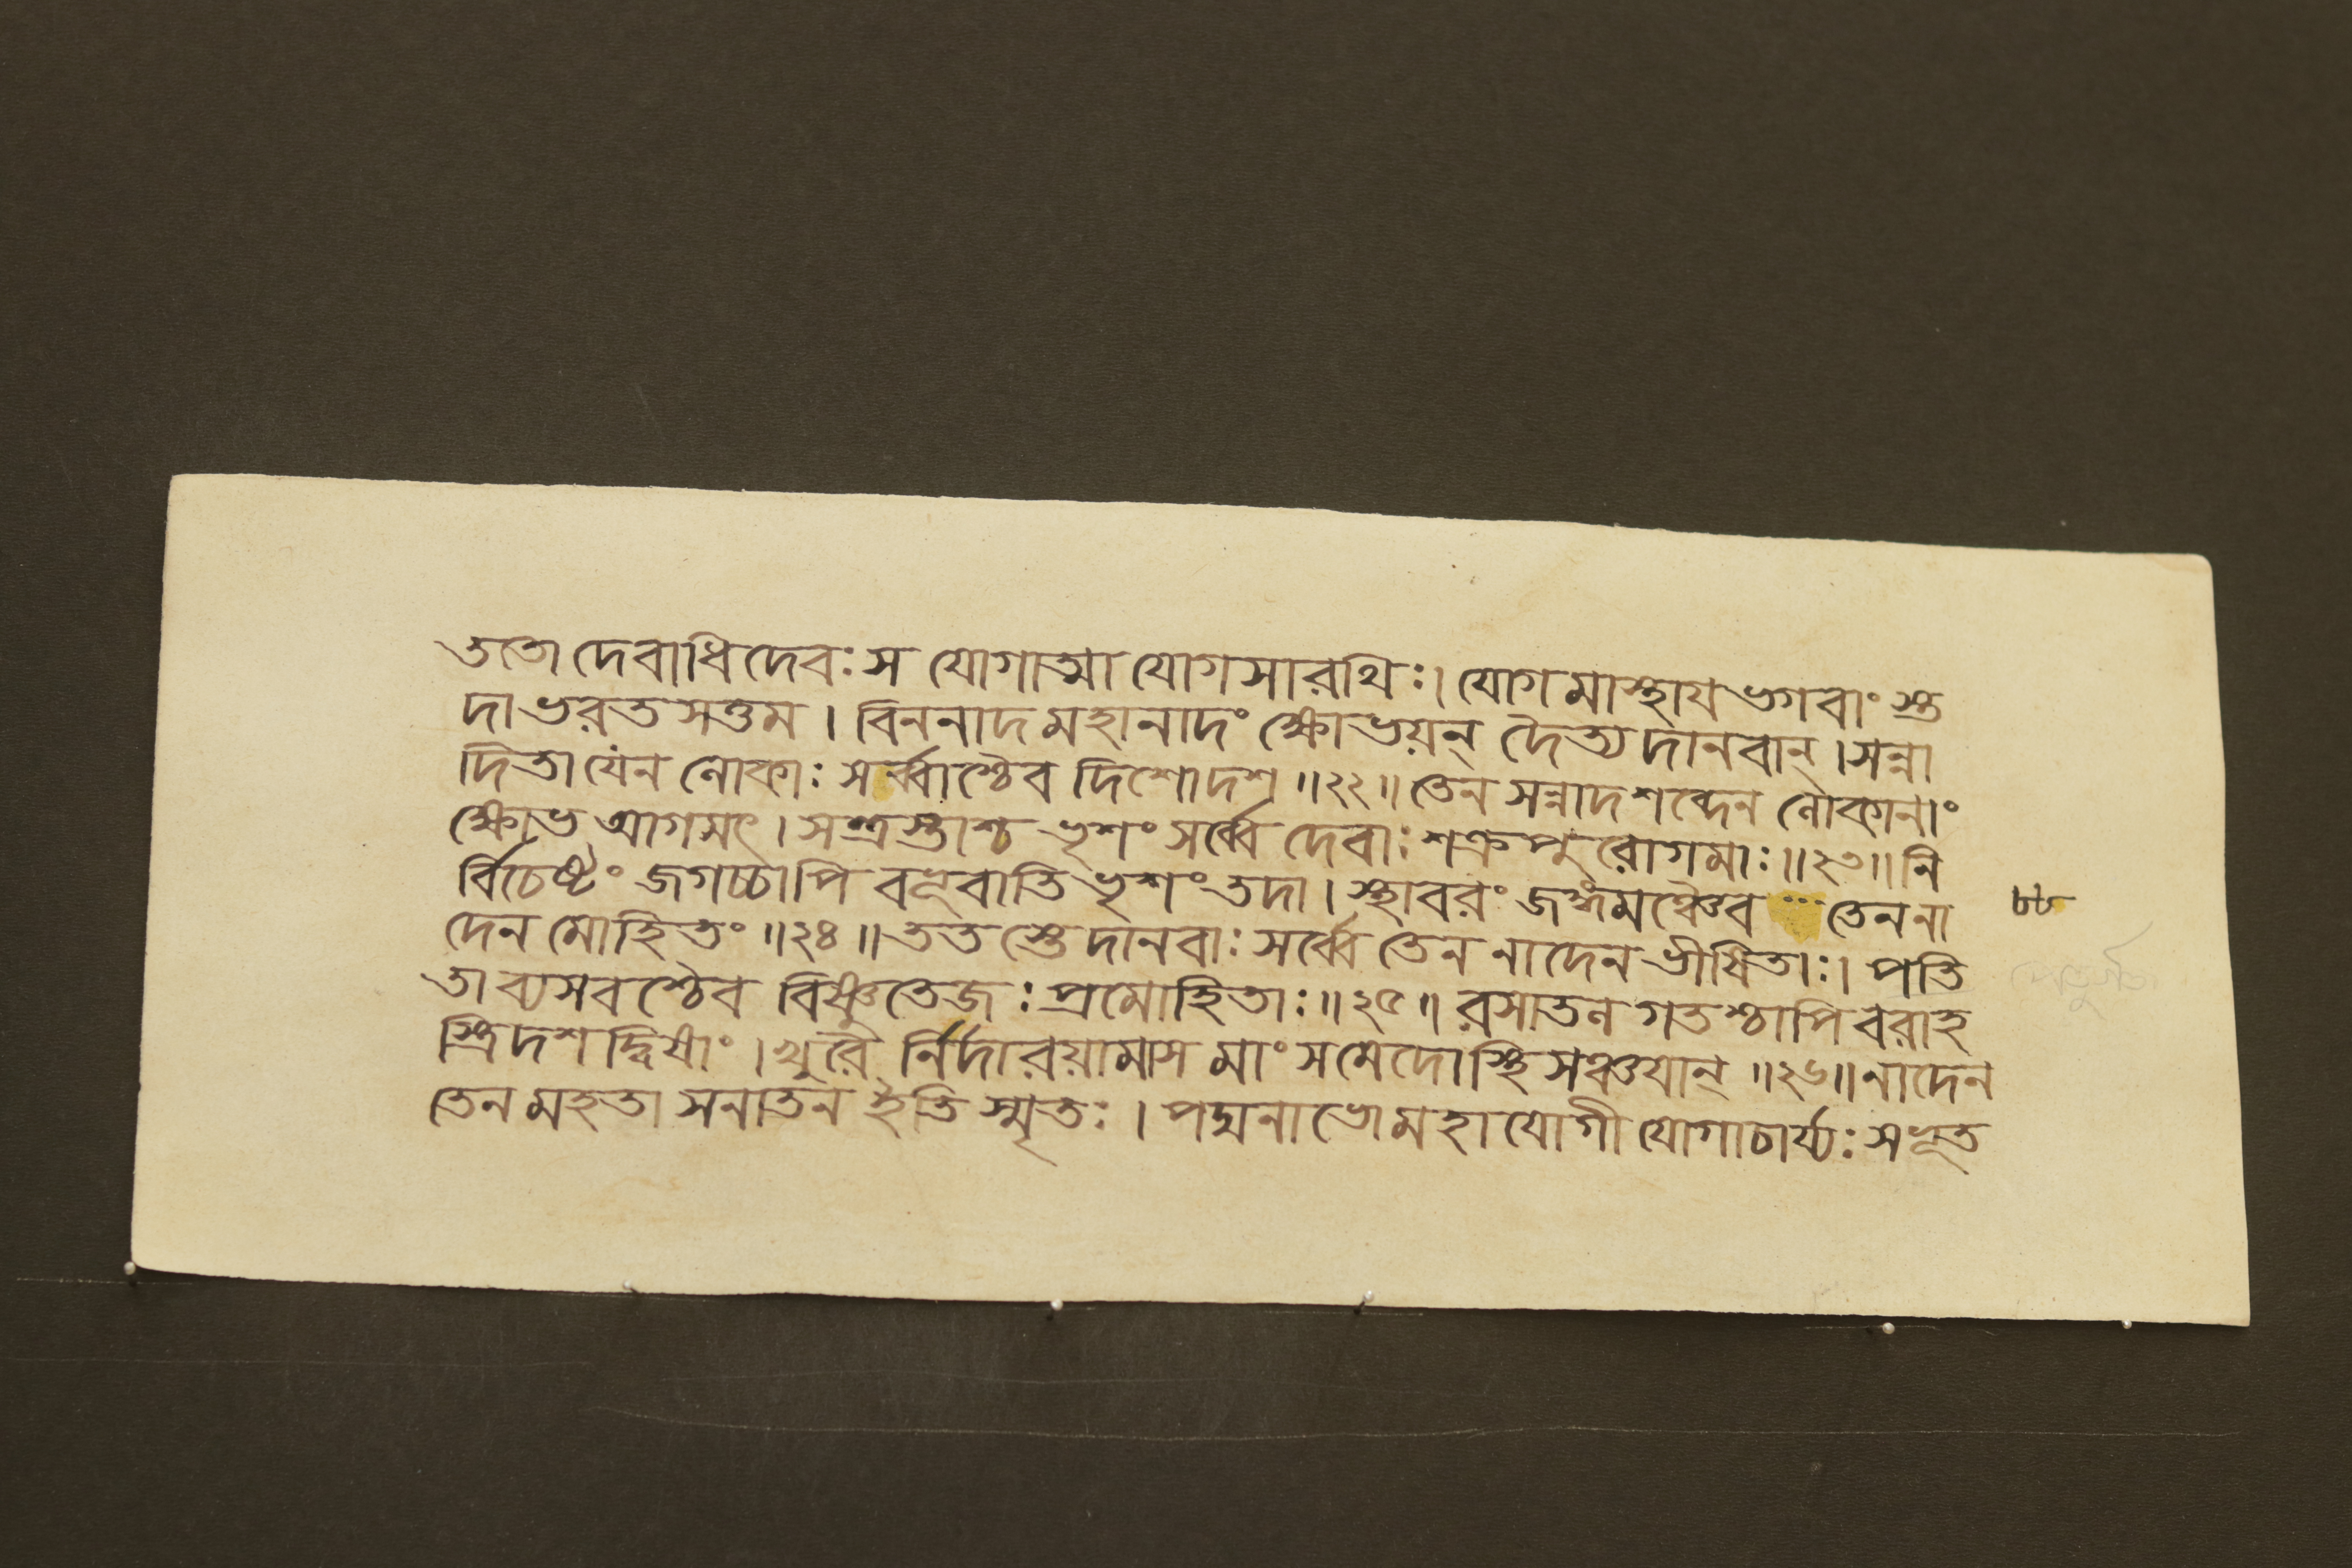 ততো দেবাধিদেবঃ স যোগাত্মা যোগসারথিঃ। যোগমাস্থায ভগবাংস্ত
দা ভরতসত্তম । বিননাদ মহানাদং ক্ষোভয়ন্ দৈত্যদানবান্ । সন্না
দিতা যেন লোকাঃ সর্ব্বাশ্চৈব দিশোদশ ॥২২॥ তেন সন্নাদশব্দেন লোকানাং
ক্ষোভ আগমৎ । সন্ত্রস্তাশ্চ ভৃশং সর্ব্বে দেবাঃ শক্রপুরোগমাঃ॥২৩॥ নি
র্বিচেষ্টং জগচ্চাপি বভূবাতিভৃশং তদা । স্থাবরং জঙ্গমঞ্চৈব তেন না
দেন মোহিতং ॥২৪॥ ততস্তে দানবাঃ সর্ব্বে তেন নাদেন ভীষিতাঃ। পতি
তা ব্যসবশ্চৈব বিষ্ণুতেজঃপ্রমোহিতাঃ॥২৫॥ রসাতল গতশ্চাপি বরাহ
স্ত্রিদশদ্বিষাং । খুরৈ র্নির্দারয়ামাস মাংসমেদোস্থিসঞ্চযান্ ॥২৬॥ নাদেন
তেন মহতা সনাতন ইতি স্মৃতঃ । পদ্মনাভো মহাযোগী যোগাচার্য্যঃ সভূত
৮৮